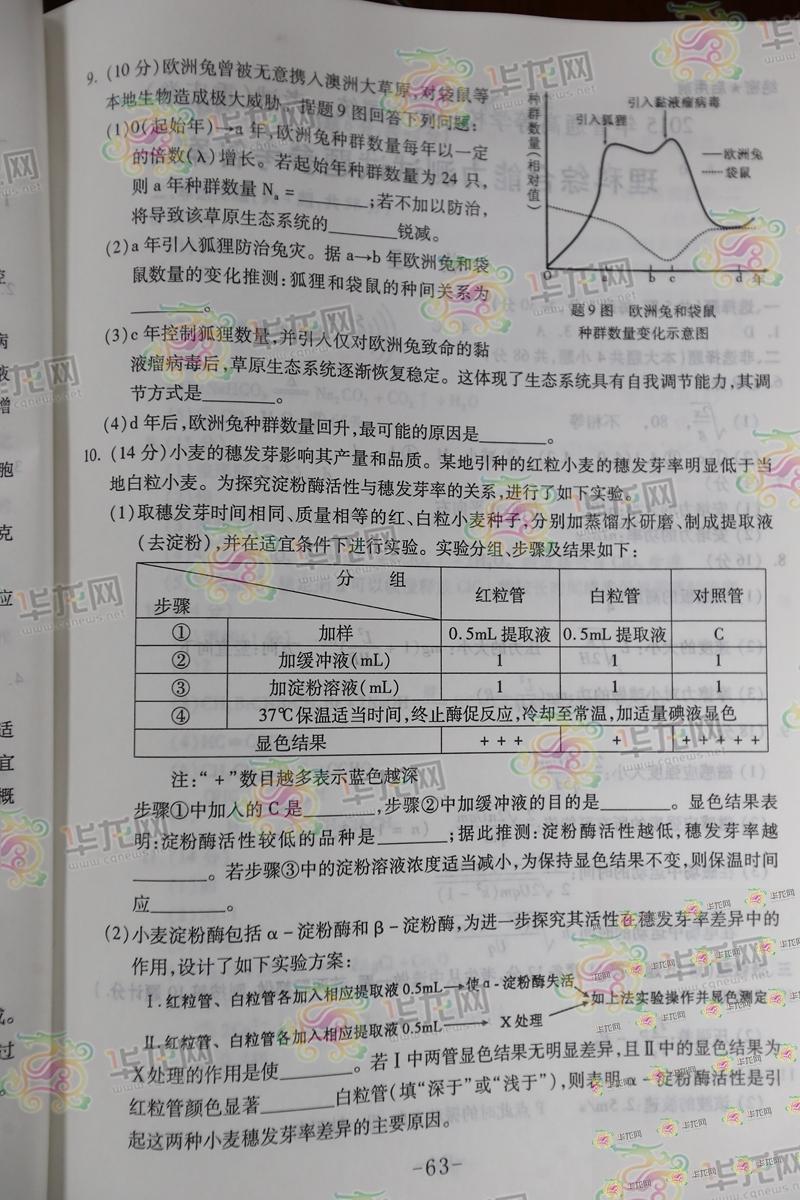 9. (10 分)欧洲兔曾被无意携入澳洲大草原,对袋鼠等
本地生物造成极大威胁。据题 9 图回答下列问题:
(1)0(起始年)→a 年,欧洲兔种群数量每年以一定
的倍数(λ)增长。若起始年种群数量为 24 只,
则 a 年种群数量 Na = ________;若不加以防治,
将导致该草原生态系统的________锐减。
(2)a 年引入狐狸防治兔灾。据 a→b 年欧洲兔和袋
鼠数量的变化推测:狐狸和袋鼠的种间关系为
________。
种群数量(相对值)
引入狐狸
引入黏液瘤病毒
欧洲兔
袋鼠
O a b c d 年
题 9 图 欧洲兔和袋鼠
种群数量变化示意图
(3)c 年控制狐狸数量,并引入仅对欧洲兔致命的黏
液瘤病毒后,草原生态系统逐渐恢复稳定。这体现了生态系统具有自我调节能力,其调
节方式是________。
(4)d 年后,欧洲兔种群数量回升,最可能的原因是________。
10. (14 分)小麦的穗发芽影响其产量和品质。某地引种的红粒小麦的穗发芽率明显低于当
地白粒小麦。为探究淀粉酶活性与穗发芽率的关系,进行了如下实验。
(1)取穗发芽时间相同、质量相等的红、白粒小麦种子,分别加蒸馏水研磨、制成提取液
(去淀粉),并在适宜条件下进行实验。实验分组、步骤及结果如下:
分 组
步骤
红粒管 白粒管 对照管
① 加样 0.5mL 提取液 0.5mL 提取液 C
② 加缓冲液(mL) 1 1 1
③ 加淀粉溶液(mL) 1 1 1
④ 37℃保温适当时间,终止酶促反应,冷却至常温,加适量碘液显色
显色结果 + + + + + + + + +
注:“ + ”数目越多表示蓝色越深
步骤①中加入的 C 是________,步骤②中加缓冲液的目的是________。显色结果表
明:淀粉酶活性较低的品种是________;据此推测:淀粉酶活性越低,穗发芽率越
________。若步骤③中的淀粉溶液浓度适当减小,为保持显色结果不变,则保温时间
应________。
(2)小麦淀粉酶包括 α - 淀粉酶和 β - 淀粉酶,为进一步探究其活性在穗发芽率差异中的
作用,设计了如下实验方案:
Ⅰ. 红粒管、白粒管各加入相应提取液 0.5mL→使 α - 淀粉酶失活
Ⅱ. 红粒管、白粒管各加入相应提取液 0.5mL→ X 处理
如上法实验操作并显色测定
X处理的作用是使________。若Ⅰ中两管显色结果无明显差异,且Ⅱ中的显色结果为
红粒管颜色显著________白粒管(填“深于”或“浅于”),则表明 α - 淀粉酶活性是引
起这两种小麦穗发芽率差异的主要原因。
-63-
华龙网
www.cqnews.net